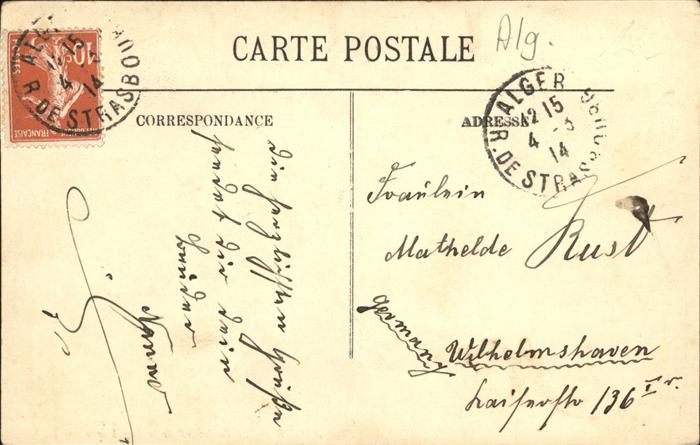 Alg.
CARTE POSTALE
CORRESPONDANCE
ADRESSE
ALGER
12 15
4 - 3
14
R. DE STRASBOURG
10
Die herzlichsten Grüße
sendet dir dein
Bruder
Fräulein
Mathelde Rust
Germany
Wilhelmshaven
Kaiserstr 136 I r.